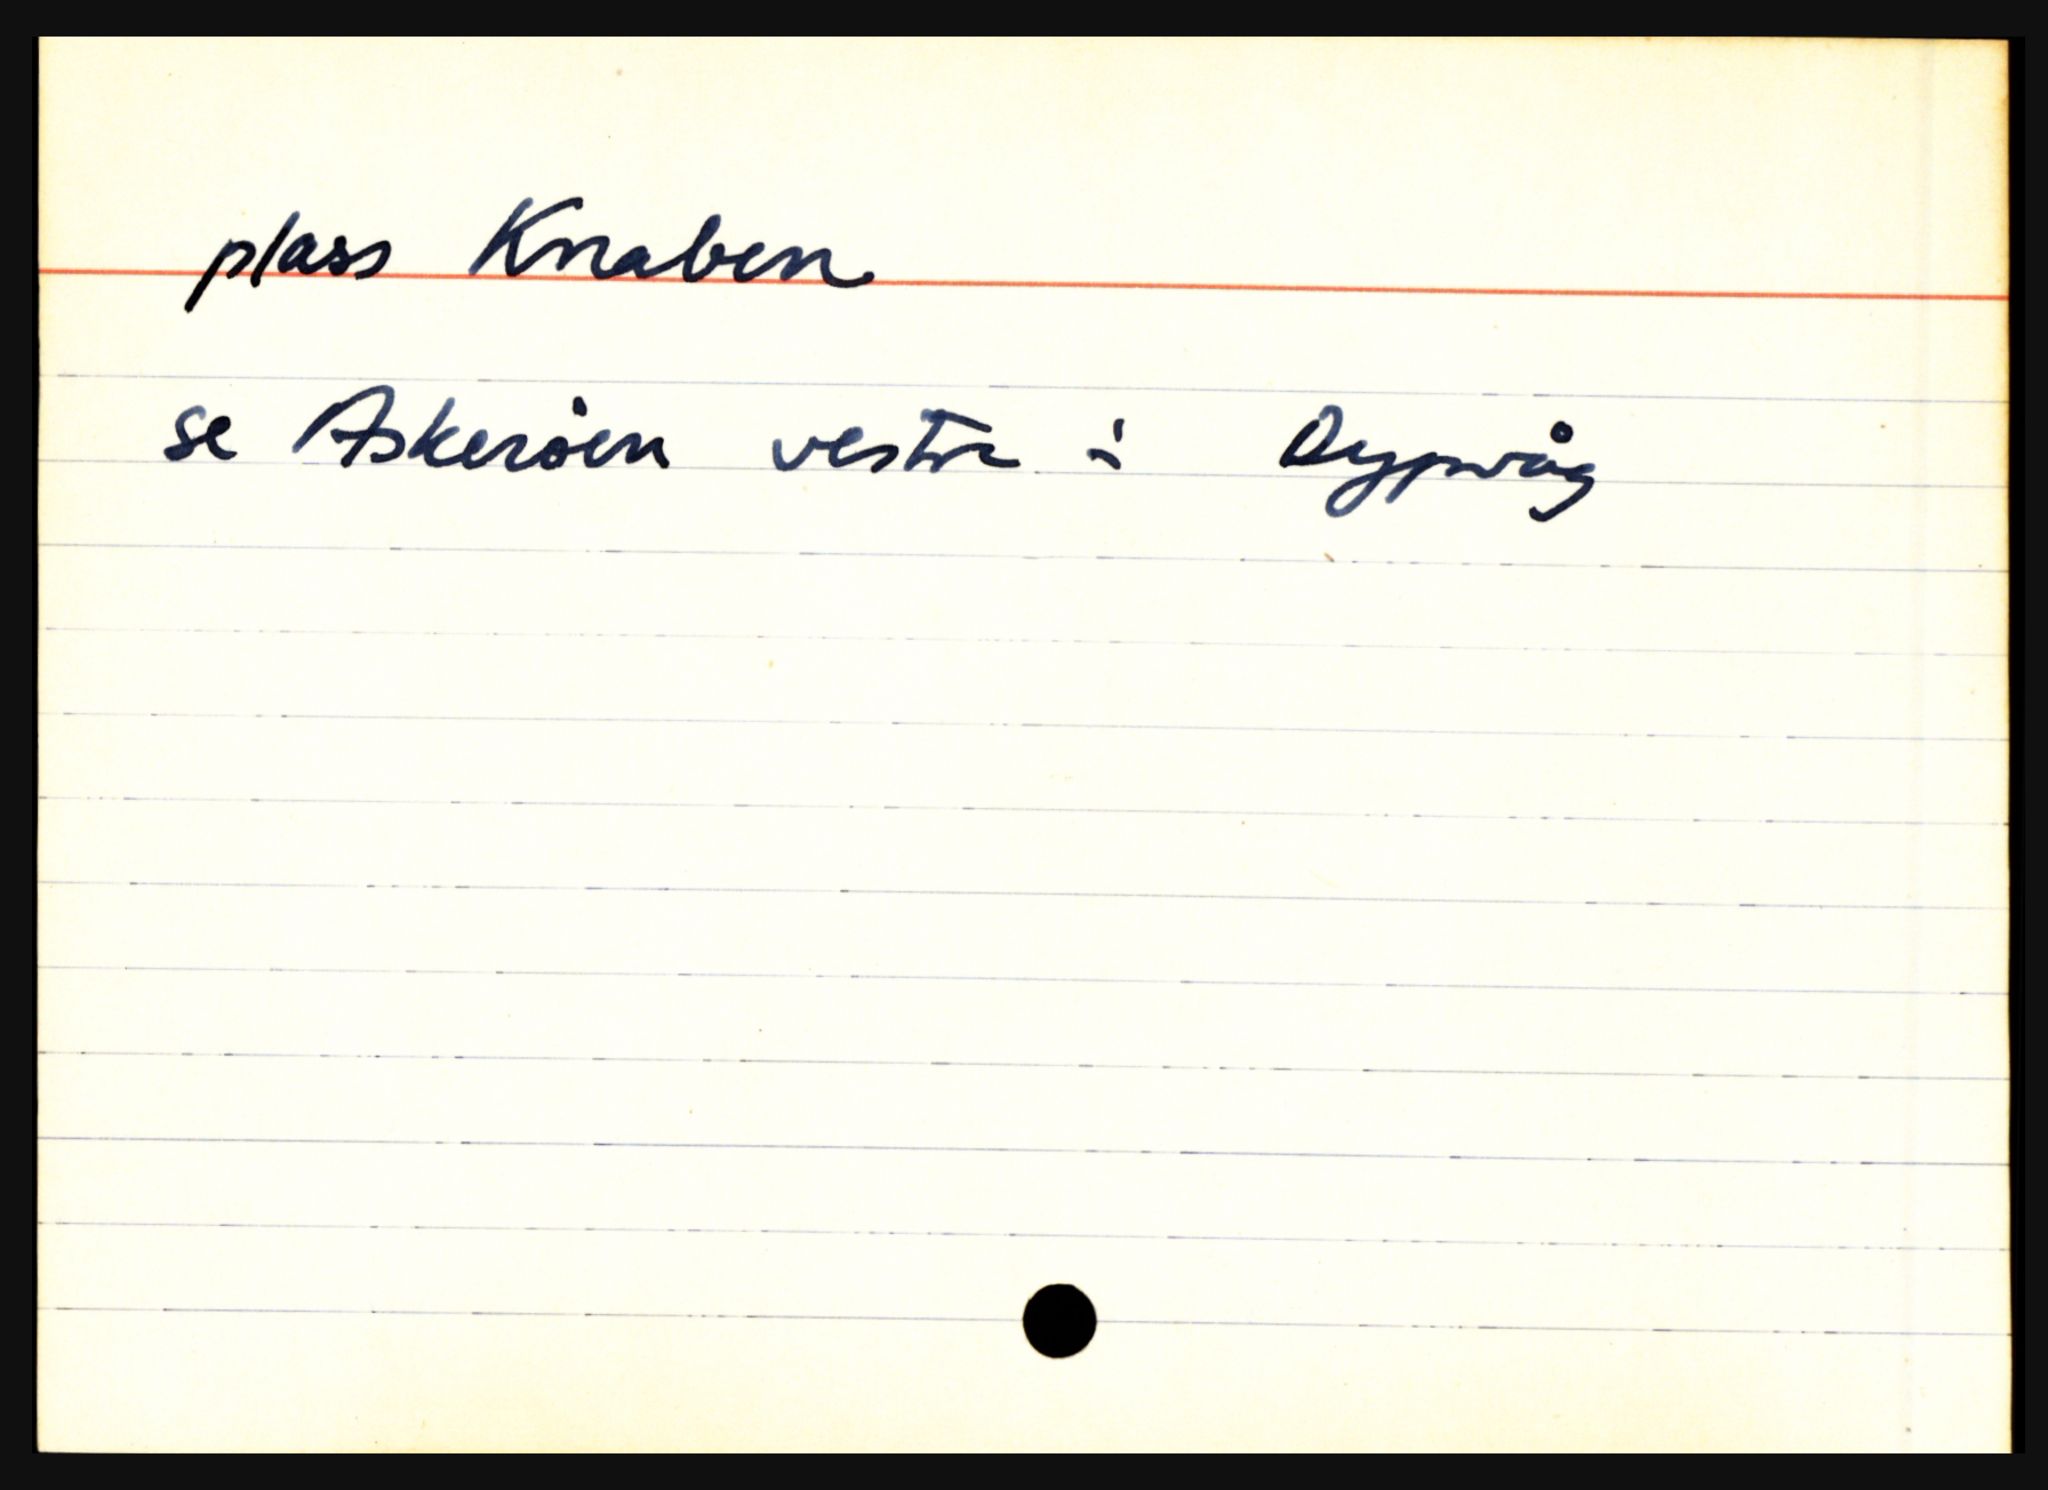 plass Knaben
se Askerøen vestre i Dypvåg